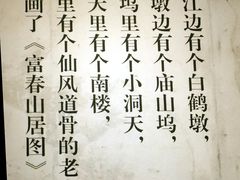 江边有个白鹤墩，
墩边有个庙山坞，
坞里有个小洞天，
天里有个南楼，
里有个仙风道骨的老
画了《富春山居图》